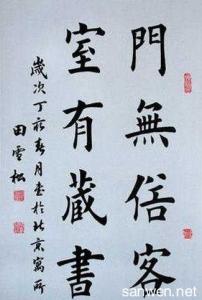 門無俗客
室有藏書
歲次丁亥春月書於北京寓所
田雪松
sanwen.net